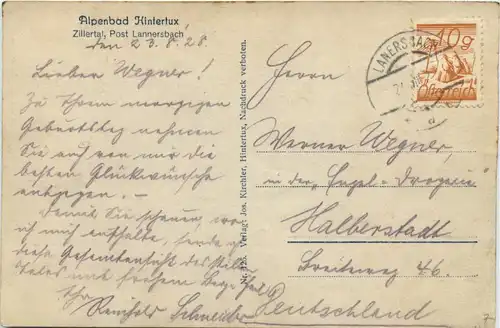 Alpenbad Hintertux
Zillertal, Post Lannersbach
den 23.8.28.
Lieber Wegner!
Zu Ihrem morgigen
Geburtstag nehmen
Sie auch von mir die
besten Glückwünsche
entgegen. —
Damit Sie schauen, wo
ich mich aufhalte, sende ich
diese Gesamtansicht des
mit frohem
Ihr
Reinhold Schneider
Nr. 125. Verlag: Jos. Kirchler, Hintertux, Nachdruck verboten.
LANERSBACH
a
40 g
Österreich
Herrn
Werner Wegner,
in der "Engel-Drogerie"
Halberstadt
Breiteweg 46.
Deutschland
7